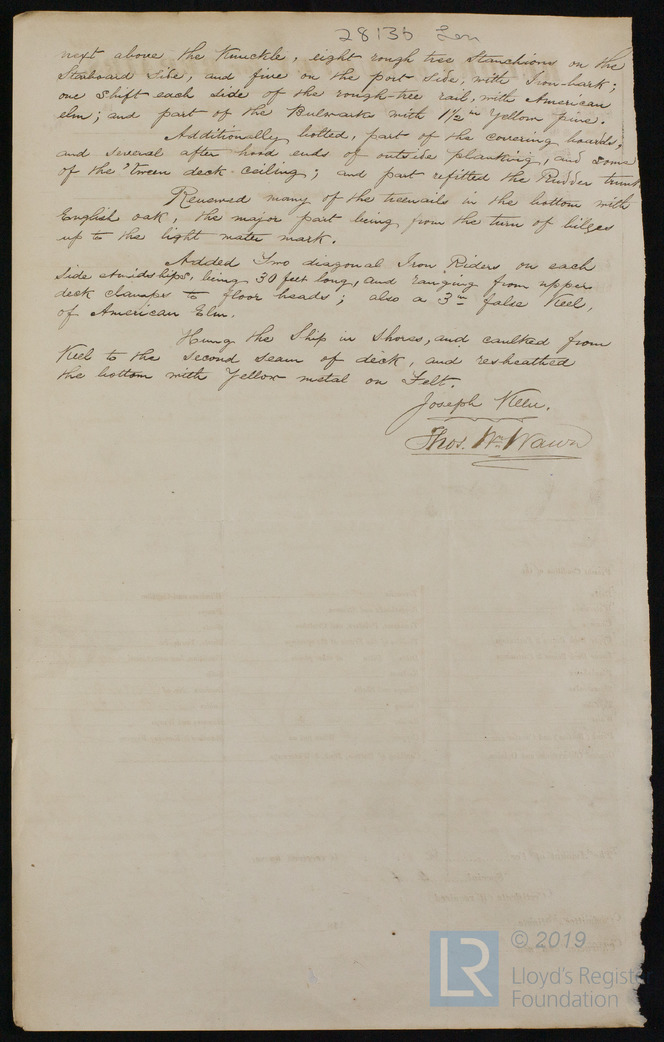 28135 Lon
next above the Knuckle, eight rough tree Stanchions on the
Starboard Side, and five on the port side, with Iron-bark;
one Shift each side of the rough-tree rail, with American
elm; and part of the Bulwarks with 1½ in Yellow pine.
Additionally bolted, part of the covering boards,
and several after hood ends of outside planking, and some
of the 'tween deck ceiling; and part refitted the Rudder trunk
Renewed many of the treenails in the bottom with
English oak, the major part being from the turn of bilges
up to the light water mark.
Added Two diagonal Iron Riders on each
side amidships, being 30 feet long, and ranging from upper
deck clamps to floor heads; also a 3 in false Keel,
of American Elm.
Hung the Ship in Shores, and caulked from
Keel to the second seam of deck, and resheathed
the bottom with Yellow metal on Felt.
Joseph Keen.
Thos. Wm Wawn
© 2019
LR
Lloyd's Register
Foundation